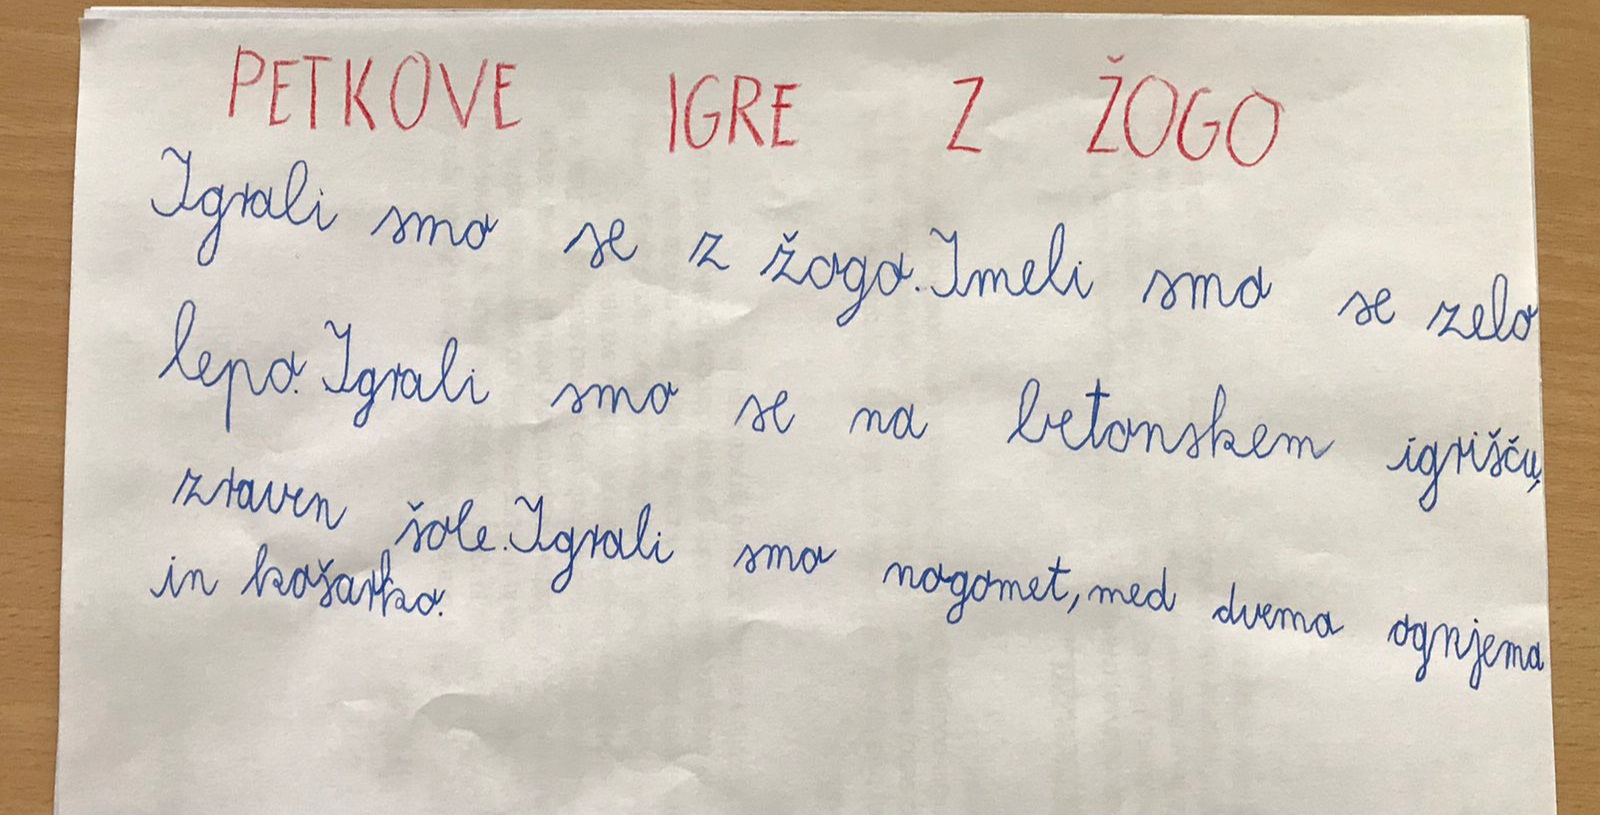 PETKOVE IGRE Z ŽOGO
Igrali smo se z žogo. Imeli smo se zelo
lepo. Igrali smo se na betonskem igrišču,
zraven šole. Igrali smo nogomet, med dvema ognjema
in košarko.